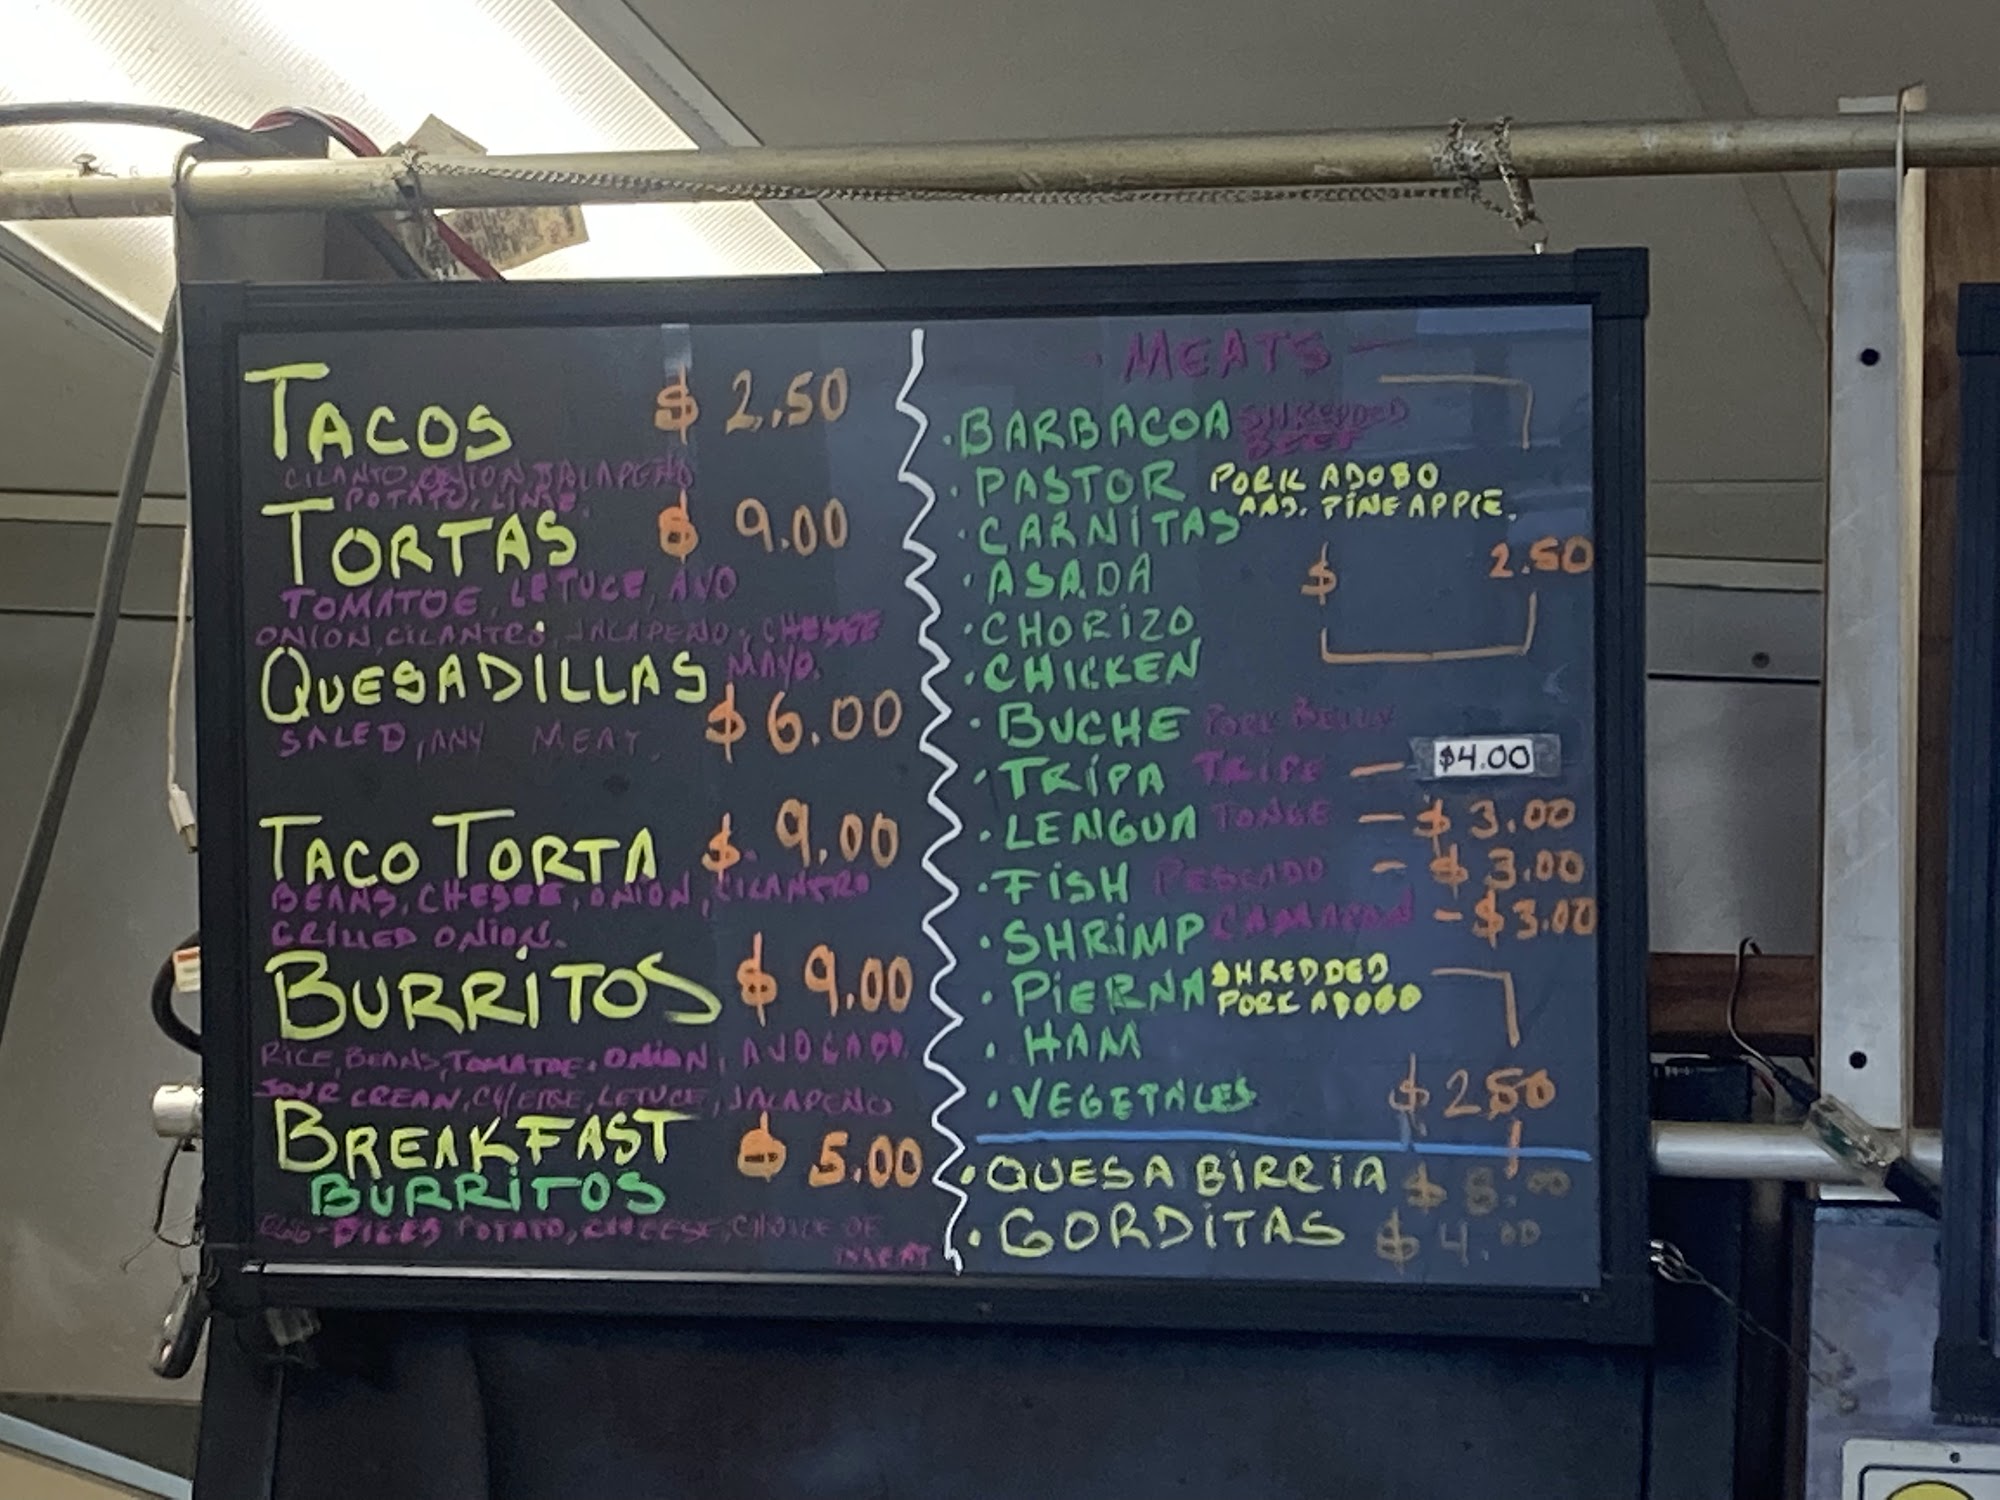 TACOS $ 2.50
CILANTO, ONION JALAPEÑO
POTATO, LIME.
TORTAS $ 9.00
TOMATOE, LETUCE, AVO
ONION, CILANTRO, JALAPEÑO, CHEESE
MAYO.
QUESADILLAS $ 6.00
SALED, ANY MEAT.
TACO TORTA $ 9.00
BEANS, CHEESE, ONION, CILANTRO
GRILLED ONION.
BURRITOS $ 9.00
RICE, BEANS, TOMATOE, ONION, AVOCADO,
SOUR CREAN, CHEESE, LETUCE, JALAPEÑO
BREAKFAST $ 5.00
BURRITOS
EGG - DICED POTATO, CHEESE, CHOICE OF
MEAT
- MEATS -
· BARBACOA SHREDDED
BEEF
· PASTOR PORK ADOBO
AND. PINEAPPLE.
· CARNITAS
· ASADA $ 2.50
· CHORIZO
· CHICKEN
· BUCHE PORK BELLY
· TRIPA TRIPE - $4.00
· LENGUA TONGE - $ 3.00
· FISH PESCADO - $ 3.00
· SHRIMP CAMARON - $3.00
· PIERNA SHREDDED
PORK ADOBO
· HAM
· VEGETALES $ 2.50
· QUESA BIRRIA $ 8.00
· GORDITAS $ 4.00